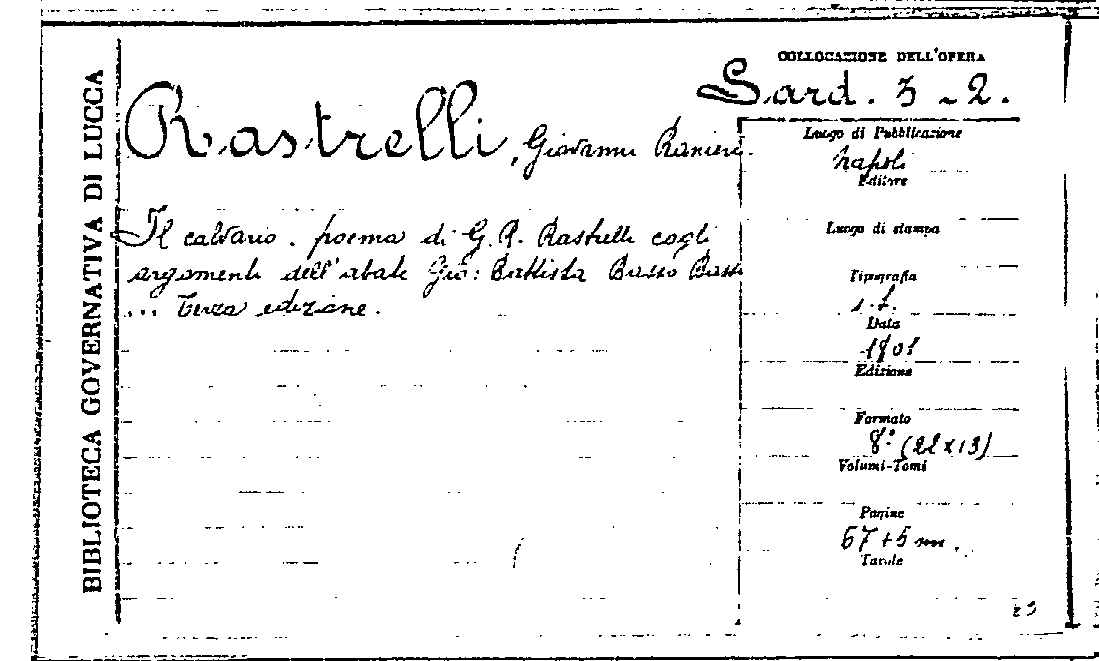 BIBLIOTECA GOVERNATIVA DI LUCCA
Rastrelli, Giovanni Ranieri.
Il calvario. poema di G. R. Rastrelli cogli
argomenti dell'abate Gio: Battista Basso Bassi
... Terza edizione.
COLLOCAZIONE DELL'OPERA
Sard. 3-2.
Luogo di Pubblicazione
Napoli
Editore
Luogo di stampa
Tipografia
s.t.
Data
1801
Edizione
Formato
8° (22x13)
Volumi-Tomi
Pagine
67+5 nn.
Tavole